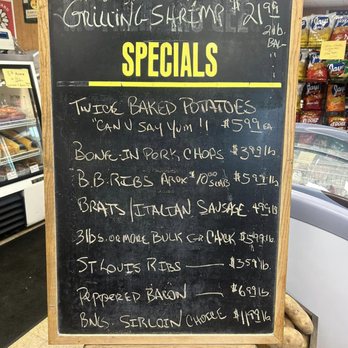 GRILLING SHRIMP $21.99
2 lb.
BAG
SPECIALS
TWICE BAKED POTATOES
"CAN U SAY YUM"! $5.99 EA
BONE-IN PORK CHOPS $3.99 lb
B.B. RIBS APROX $10.00 SLABS $5.99 lb.
BRATS/ITALIAN SAUSAGE 4.99 lb
3 lbs. OR MORE BULK GR CHUCK $5.99 lb.
ST LOUIS RIBS — $3.59 lb.
PEPPERED BACON — $6.99 lb
BNLS. SIRLOIN CHOICE $11.99 lb
Lay's